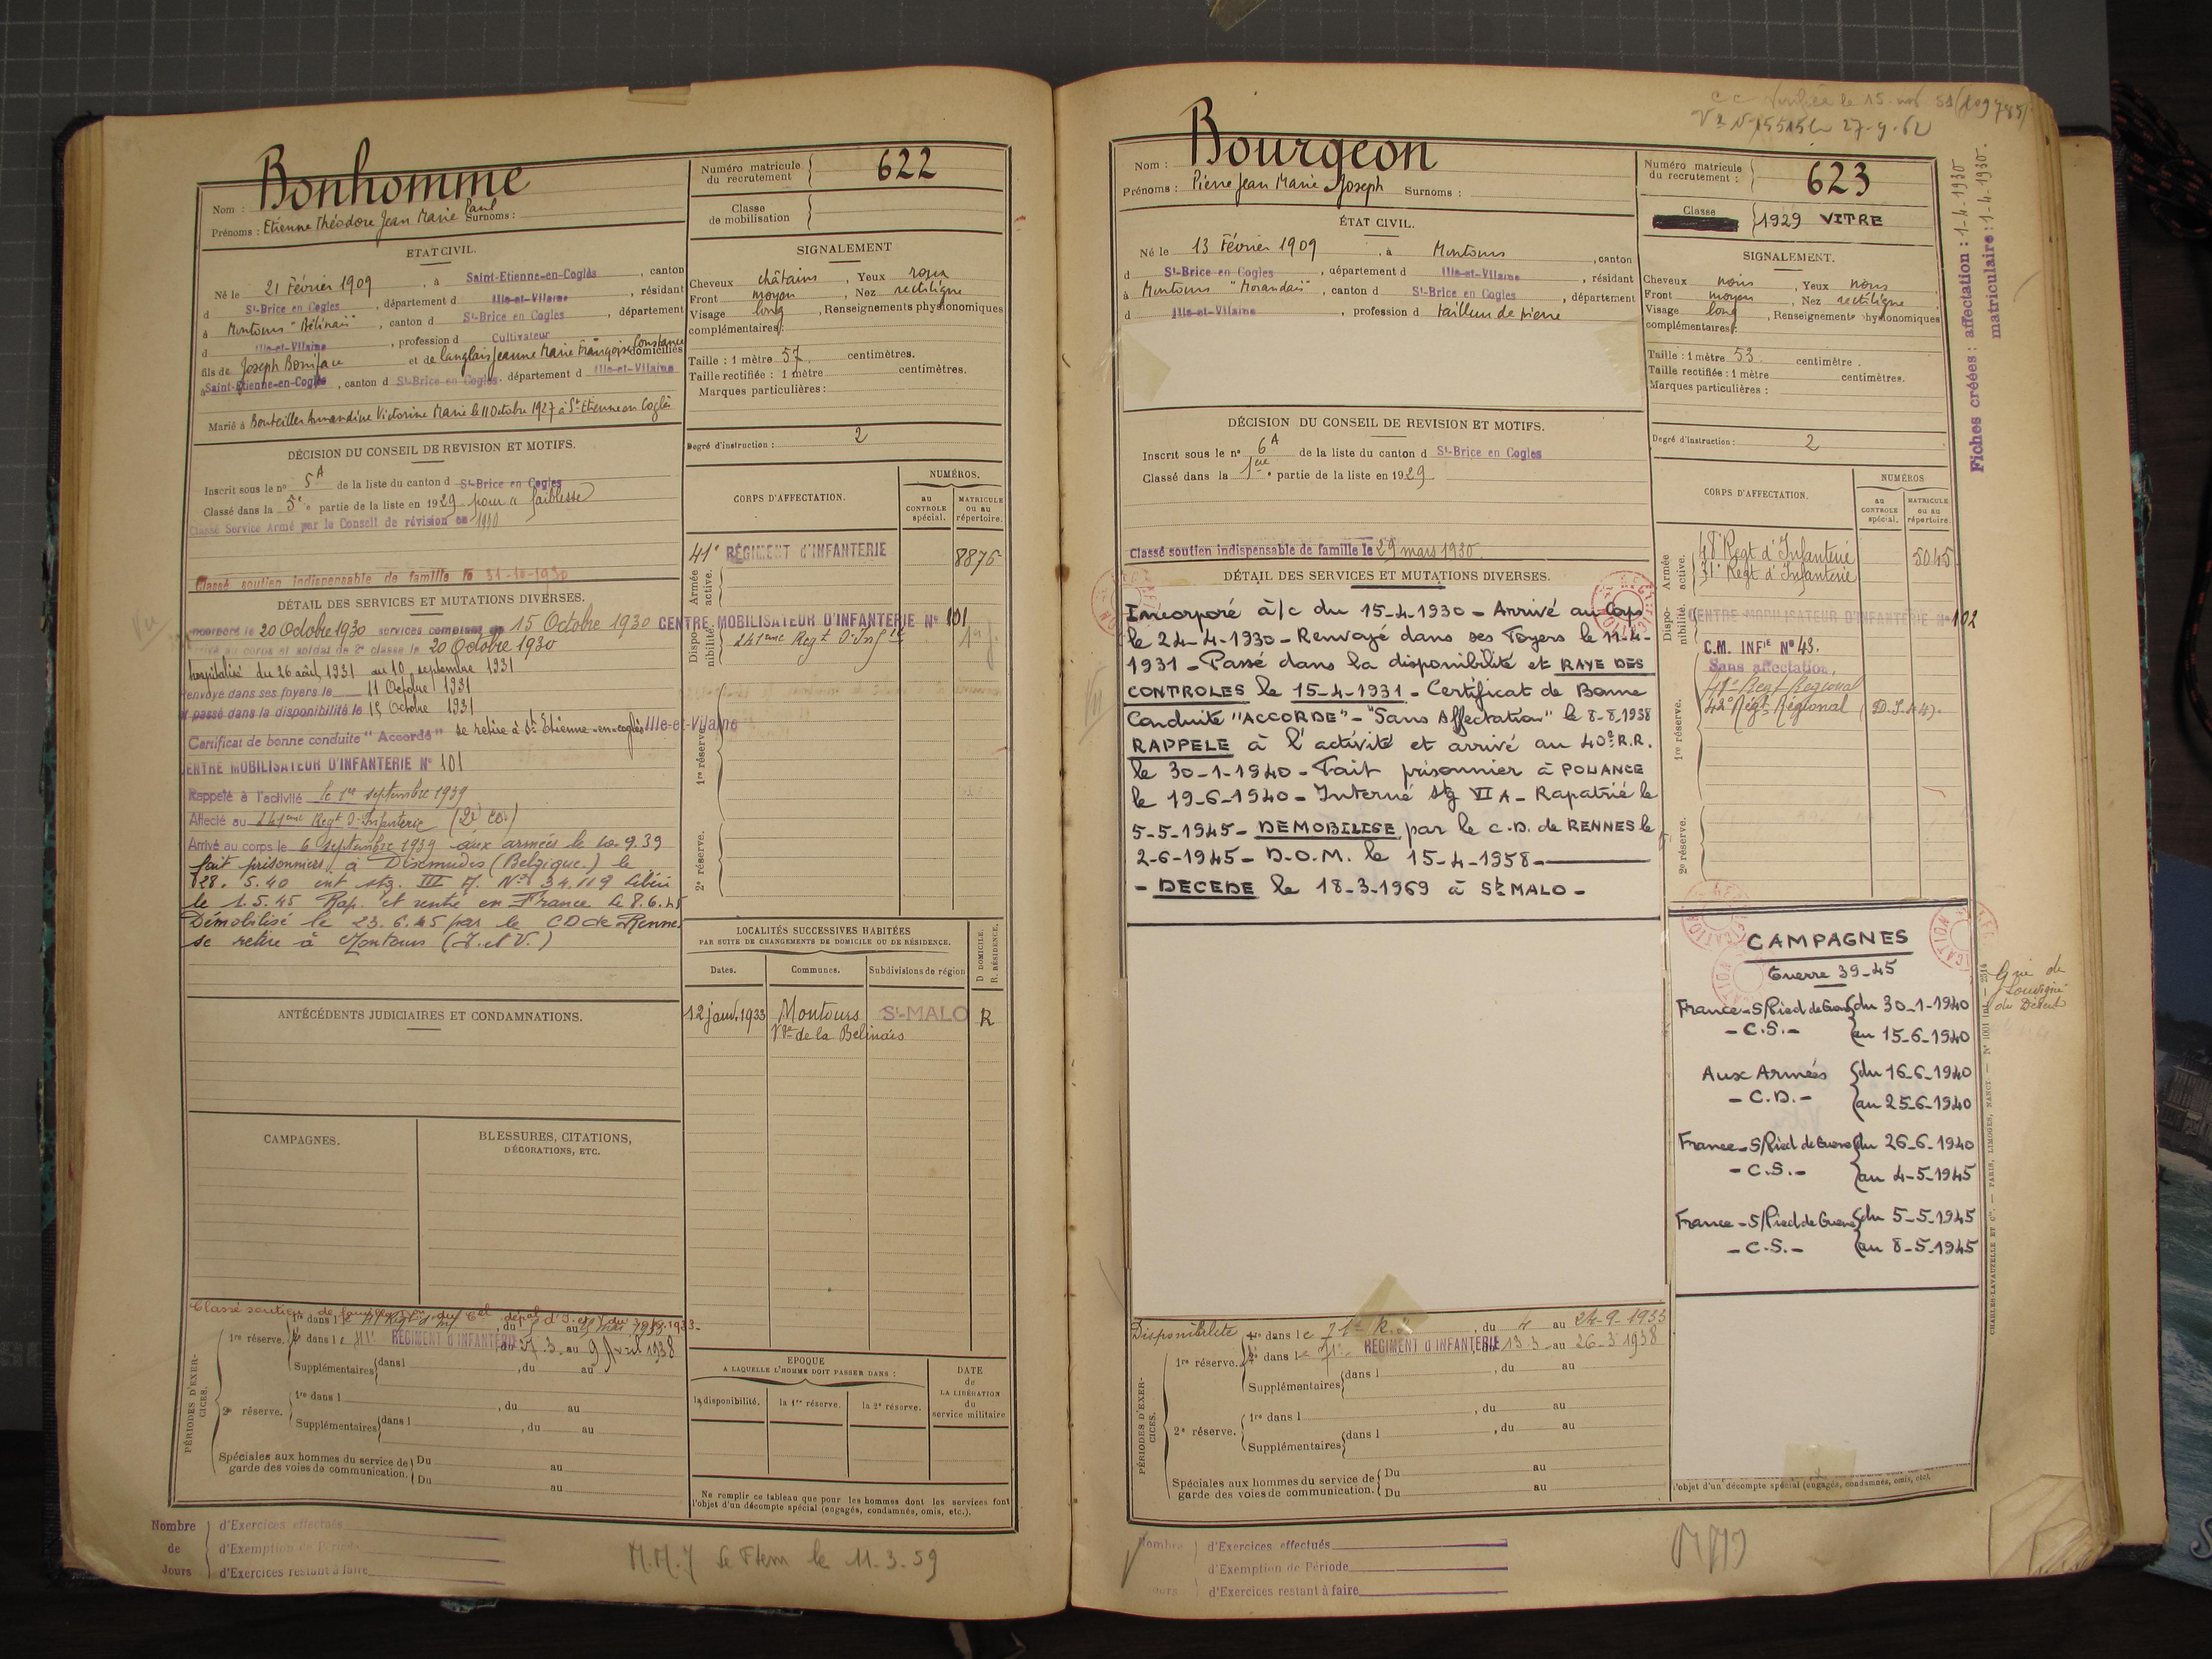 Nom : Bonhomme
Prénoms : Etienne Théodore Jean Marie Paul Surnoms :
ETAT CIVIL.
Né le 21 Février 1909, à Saint-Etienne-en-Coglès, canton
d St-Brice en Cogles, département d Ille-et-Vilaine, résidant
à Montours "Bélinais", canton d St-Brice en Cogles, département
d Ille-et-Vilaine, profession d Cultivateur
fils de Joseph Boniface et de Langlais Jeanne Marie Françoise Constance domiciliés
à Saint-Etienne-en-Coglès, canton d St-Brice en Cogles, département d Ille-et-Vilaine
Marié à Bouteiller Amandine Victorine Marie le 11 Octobre 1927 à St Etienne en Coglès
DÉCISION DU CONSEIL DE REVISION ET MOTIFS.
Inscrit sous le no 5A de la liste du canton d St-Brice en Cogles
Classé dans la 5e partie de la liste en 1929 pour faiblesse
Classé Service Armé par le Conseil de révision en 1930
Classé soutien indispensable de famille le 31-10-1930
DÉTAIL DES SERVICES ET MUTATIONS DIVERSES.
Incorporé le 20 Octobre 1930 services comptant du 15 Octobre 1930
Arrivé au corps et soldat de 2e classe le 20 Octobre 1930
hospitalisé du 26 août 1931 au 10 septembre 1931
Renvoyé dans ses foyers le 11 Octobre 1931
et passé dans la disponibilité le 15 Octobre 1931
Certificat de bonne conduite "Accordé" se retire à St Etienne-en-coglès Ille-et-Vilaine
CENTRE MOBILISATEUR D'INFANTERIE No 101
Rappelé à l'activité le 1er septembre 1939
Affecté au 241eme Regt d'Infanterie
Arrivé au corps le 6 septembre 1939 aux armées le 10.9.39
fait prisonniers à Dixmudes (Belgique.) le
28. 5.40 int stg. III A. No 34.119 Libéré
le 1.5.45 Rap. et rentré en France le 8.6.45
Démobilisé le 23.6.45 par le CD de Rennes
se retire à Montours (I. et V.)
ANTÉCÉDENTS JUDICIAIRES ET CONDAMNATIONS.
CAMPAGNES.
BLESSURES, CITATIONS, DÉCORATIONS, ETC.
PÉRIODES D'EXERCICES.
1re réserve. 1re dans l
2e dans l e 41e RÉGIMENT D'INFANTERIE du 27.3. au 9 Avril 1938
Supplémentaires dans l , du au
2e réserve. 1re dans l , du au
Supplémentaires dans l , du au
Spéciales aux hommes du service de garde des voies de communication. Du au
Du au
Nombre de Jours
d'Exercices effectués
d'Exemption de Période
d'Exercices restant à faire
Numéro matricule du recrutement 622
Classe de mobilisation
SIGNALEMENT
Cheveux châtains, Yeux roux
Front moyen, Nez rectiligne
Visage long, Renseignements physionomiques
complémentaires :
Taille : 1 mètre 57 centimètres.
Taille rectifiée : 1 mètre centimètres.
Marques particulières :
Degré d'instruction : 2
CORPS D'AFFECTATION.
NUMÉROS.
au CONTROLE spécial.
MATRICULE ou au répertoire.
Armée active.
41e RÉGIMENT D'INFANTERIE 8876
Disponibilité.
CENTRE MOBILISATEUR D'INFANTERIE No 101
241eme Regt D'Infie
1re réserve.
2e réserve.
LOCALITÉS SUCCESSIVES HABITÉES
PAR SUITE DE CHANGEMENTS DE DOMICILE OU DE RÉSIDENCE.
D DOMICILE. R. RÉSIDENCE.
Dates. Communes. Subdivisions de région
12 janv. 1933 Montours St-MALO R
de la Belinais
EPOQUE
A LAQUELLE L'HOMME DOIT PASSER DANS :
la disponibilité. la 1re réserve. la 2e réserve.
DATE de LA LIBÉRATION du service militaire
Ne remplir ce tableau que pour les hommes dont les services font
l'objet d'un décompte spécial (engagés, condamnés, omis, etc.).
le 11.3.59
Nom : Bourgeon
Prénoms : Pierre Jean Marie Joseph Surnoms :
ÉTAT CIVIL.
Né le 13 Février 1909, à Montours, canton
d St-Brice en Cogles, département d Ille-et-Vilaine, résidant
à Montours "Morandais", canton d St-Brice en Cogles, département
d Ille-et-Vilaine, profession d tailleur de pierre
DÉCISION DU CONSEIL DE REVISION ET MOTIFS.
Inscrit sous le no 6A de la liste du canton d St-Brice en Cogles
Classé dans la 1ere partie de la liste en 1929
Classé soutien indispensable de famille le 29 mars 1930
DÉTAIL DES SERVICES ET MUTATIONS DIVERSES.
Incorporé à/c du 15-4-1930 - Arrivé au Corps
le 24-4-1930 - Renvoyé dans ses Foyers le 11-4-
1931 - Passé dans la disponibilité et RAYE DES
CONTROLES le 15-4-1931 - Certificat de Bonne
Conduite "ACCORDE" - "Sans Affectation" le 8-8-1938
RAPPELE à l'activité et arrivé au 40e R.R.
le 30-1-1940 - Fait prisonnier à POUANCE
le 19-6-1940 - Interné stg VI A - Rapatrié le
5-5-1945 - DEMOBILISE par le C.D. de RENNES le
2-6-1945 - D.O.M. le 15-4-1958 -
- DECEDE le 18-3-1969 à St MALO -
PÉRIODES D'EXERCICES.
Disponibilité 1re dans l e 71e R.I. , du 4 au 24-9-1933
1re réserve. 2e dans l e 71e RÉGIMENT D'INFANTERIE 13.3 au 26-3 1938
Supplémentaires dans l , du au
2e réserve. 1re dans l , du au
Supplémentaires dans l , du au
Spéciales aux hommes du service de garde des voies de communication. Du au
Du au
Nombre
Jours
d'Exercices effectués
d'Exemption de Période
d'Exercices restant à faire
27-9-62
Numéro matricule du recrutement : 623
Classe 1929 VITRE
SIGNALEMENT.
Cheveux noirs, Yeux noirs
Front moyen, Nez rectiligne
Visage long, Renseignements physionomiques
complémentaires :
Taille : 1 mètre 53 centimètre.
Taille rectifiée : 1 mètre centimètres.
Marques particulières :
Degré d'instruction : 2
CORPS D'AFFECTATION.
NUMÉROS
au CONTROLE spécial.
MATRICULE ou au répertoire.
Armée active.
48e Regt d'Infanterie 5045
71e Regt d'Infanterie
Disponibilité.
CENTRE MOBILISATEUR D'INFANTERIE No 102
C.M. INFie No 43.
Sans affectation,
1re réserve.
41e Regt Régional
42e Régt Régional
2e réserve.
CAMPAGNES
Guerre 39-45
France - S/Pied de Guerre du 30-1-1940
- C.S. - au 15-6-1940
Aux Armées du 16-6-1940
- C.D. - au 25-6-1940
France - S/Pied de Guerre du 26-6-1940
- C.S. - au 4-5-1945
France - S/Pied de Guerre du 5-5-1945
- C.S. - au 8-5-1945
l'objet d'un décompte spécial (engagés, condamnés, omis, etc).
Fiches créées : affectation : 1-4-1930
matriculaire : 1-4-1930.
Louvigné
du Désert
CHARLES-LAVAUZELLE ET Cie. — PARIS, LIMOGES, NANCY.